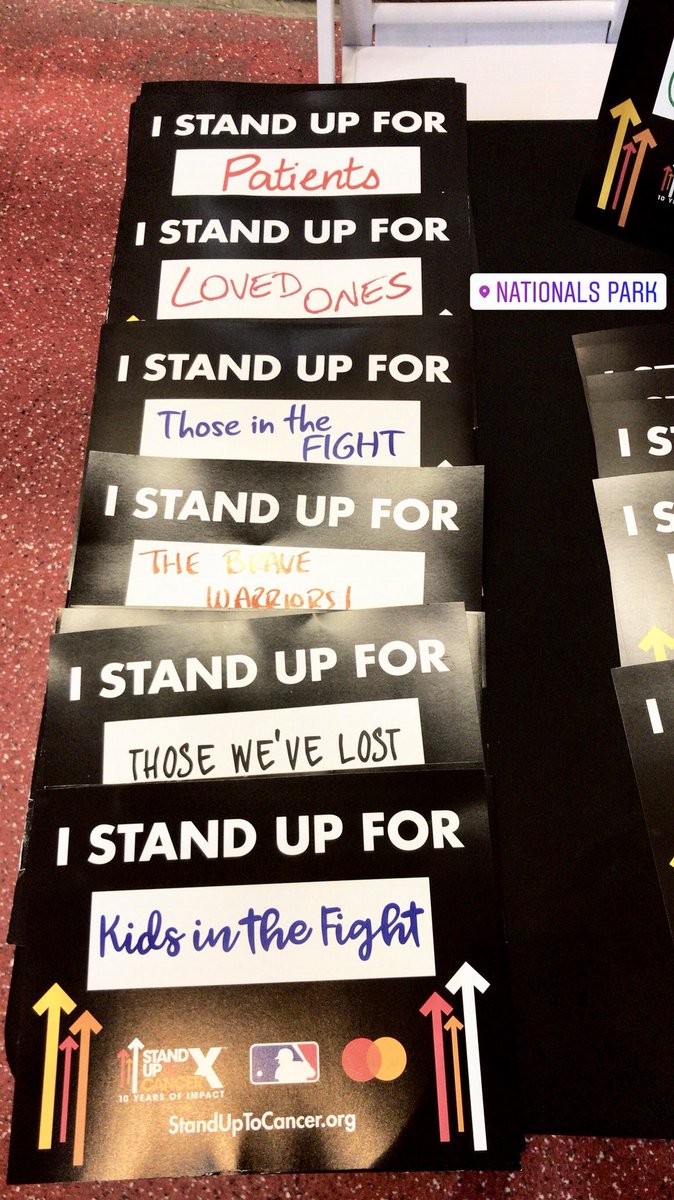 I STAND UP FOR
Patients
I STAND UP FOR
LOVED ONES
NATIONALS PARK
I STAND UP FOR
Those in the
FIGHT
I STAND UP FOR
THE BRAVE
WARRIORS!
I STAND UP FOR
THOSE WE'VE LOST
I STAND UP FOR
Kids in the Fight
STAND
UP
CANCER
10 YEARS OF IMPACT
StandUpToCancer.org
I
I
I